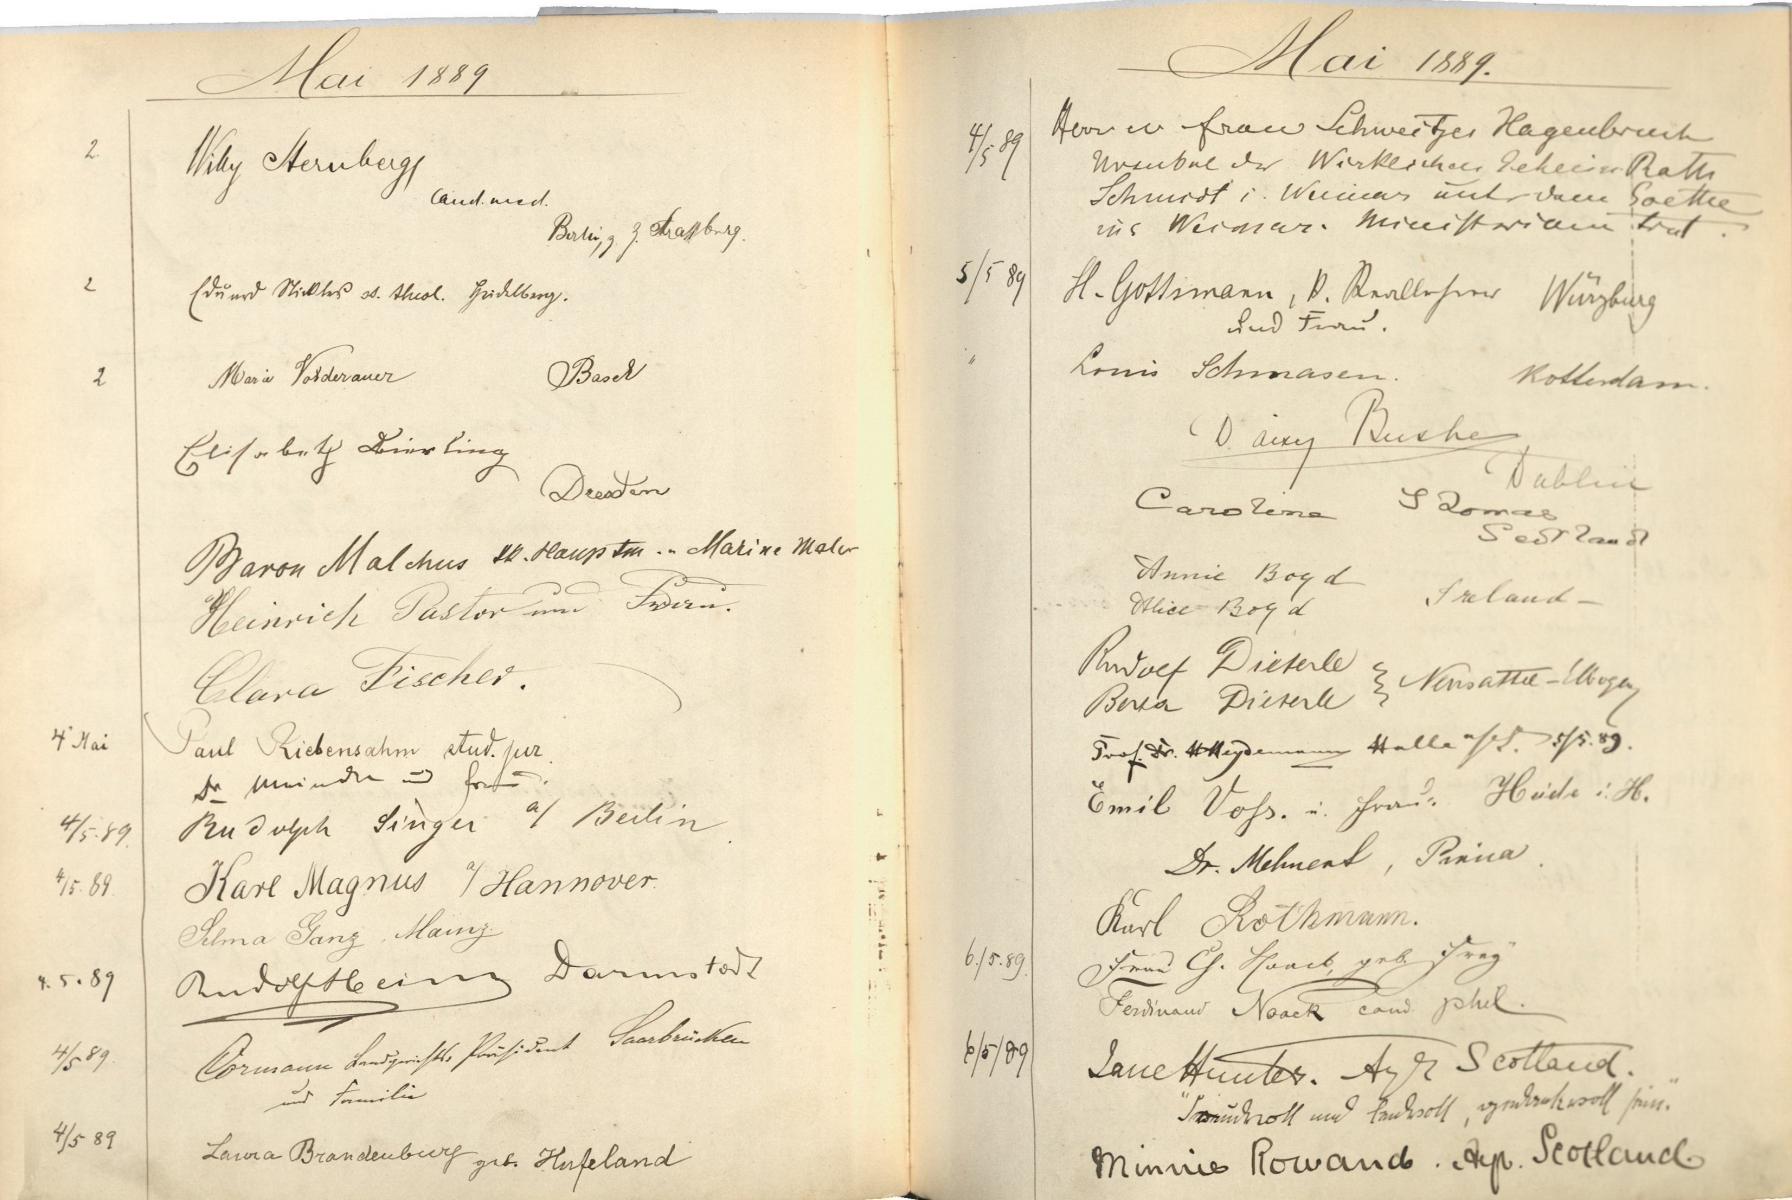 Mai 1889
2 Willy Sternberg
cand. med.
Berlin, z. Z. Strassburg.
2 Eduard st. theol. Heidelberg.
2 Maria Vorderauer Basel
Elisabeth Bierling
Dresden
Baron Malchus K. Hauptm. Marine Maler
Heinrich Pastor und Frau.
Clara Fischer.
4 Mai Paul Riebensahm stud. jur.
Dr und Frau.
4/5.89. Rudolph Singer a/ Berlin
4/5.89. Karl Magnus a/ Hannover.
Selma Ganz, Mainz.
4.5.89 Rudolf Heim Darmstadt
4/5 89. Cormann Landgerichts Präsident Saarbrücken
und Familie
4/5 89 Laura Brandenburg geb. Hufeland
Mai 1889.
4/5 89 Herr u Frau Schweitzer Hagenbruch
der Wirklichen Geheim Raths
Schmidt i. Weimar unter dem Goethe
ins Weimar. Ministerium trat.
5/5 89 H. Gottsmann, K. Reallehrer Würzburg
und Frau.
" Louis Schmasen. Rotterdam.
Daisy Bushe
Dublin
Caroline Thomas
Scotland
Annie Boyd
Alice Boyd Ireland -
Rudolf Dieterle
Berta Dieterle } Neusattel-Elbogen
Prof. Dr. H Heydemann Halle a/S. 5/5. 89.
Emil Voss. u. Frau. Heide i. H.
Dr. Mehnert, Pirna.
Karl Rothmann.
6./5.89. Frau Ch. Haack geb. Frey
Ferdinand Noack cand phil.
6/5/89 Jane Hunter. Ayr Scotland.
"Freudvoll und leidvoll, gedankenvoll sein."
Minnie Rowand. Ayr. Scotland.